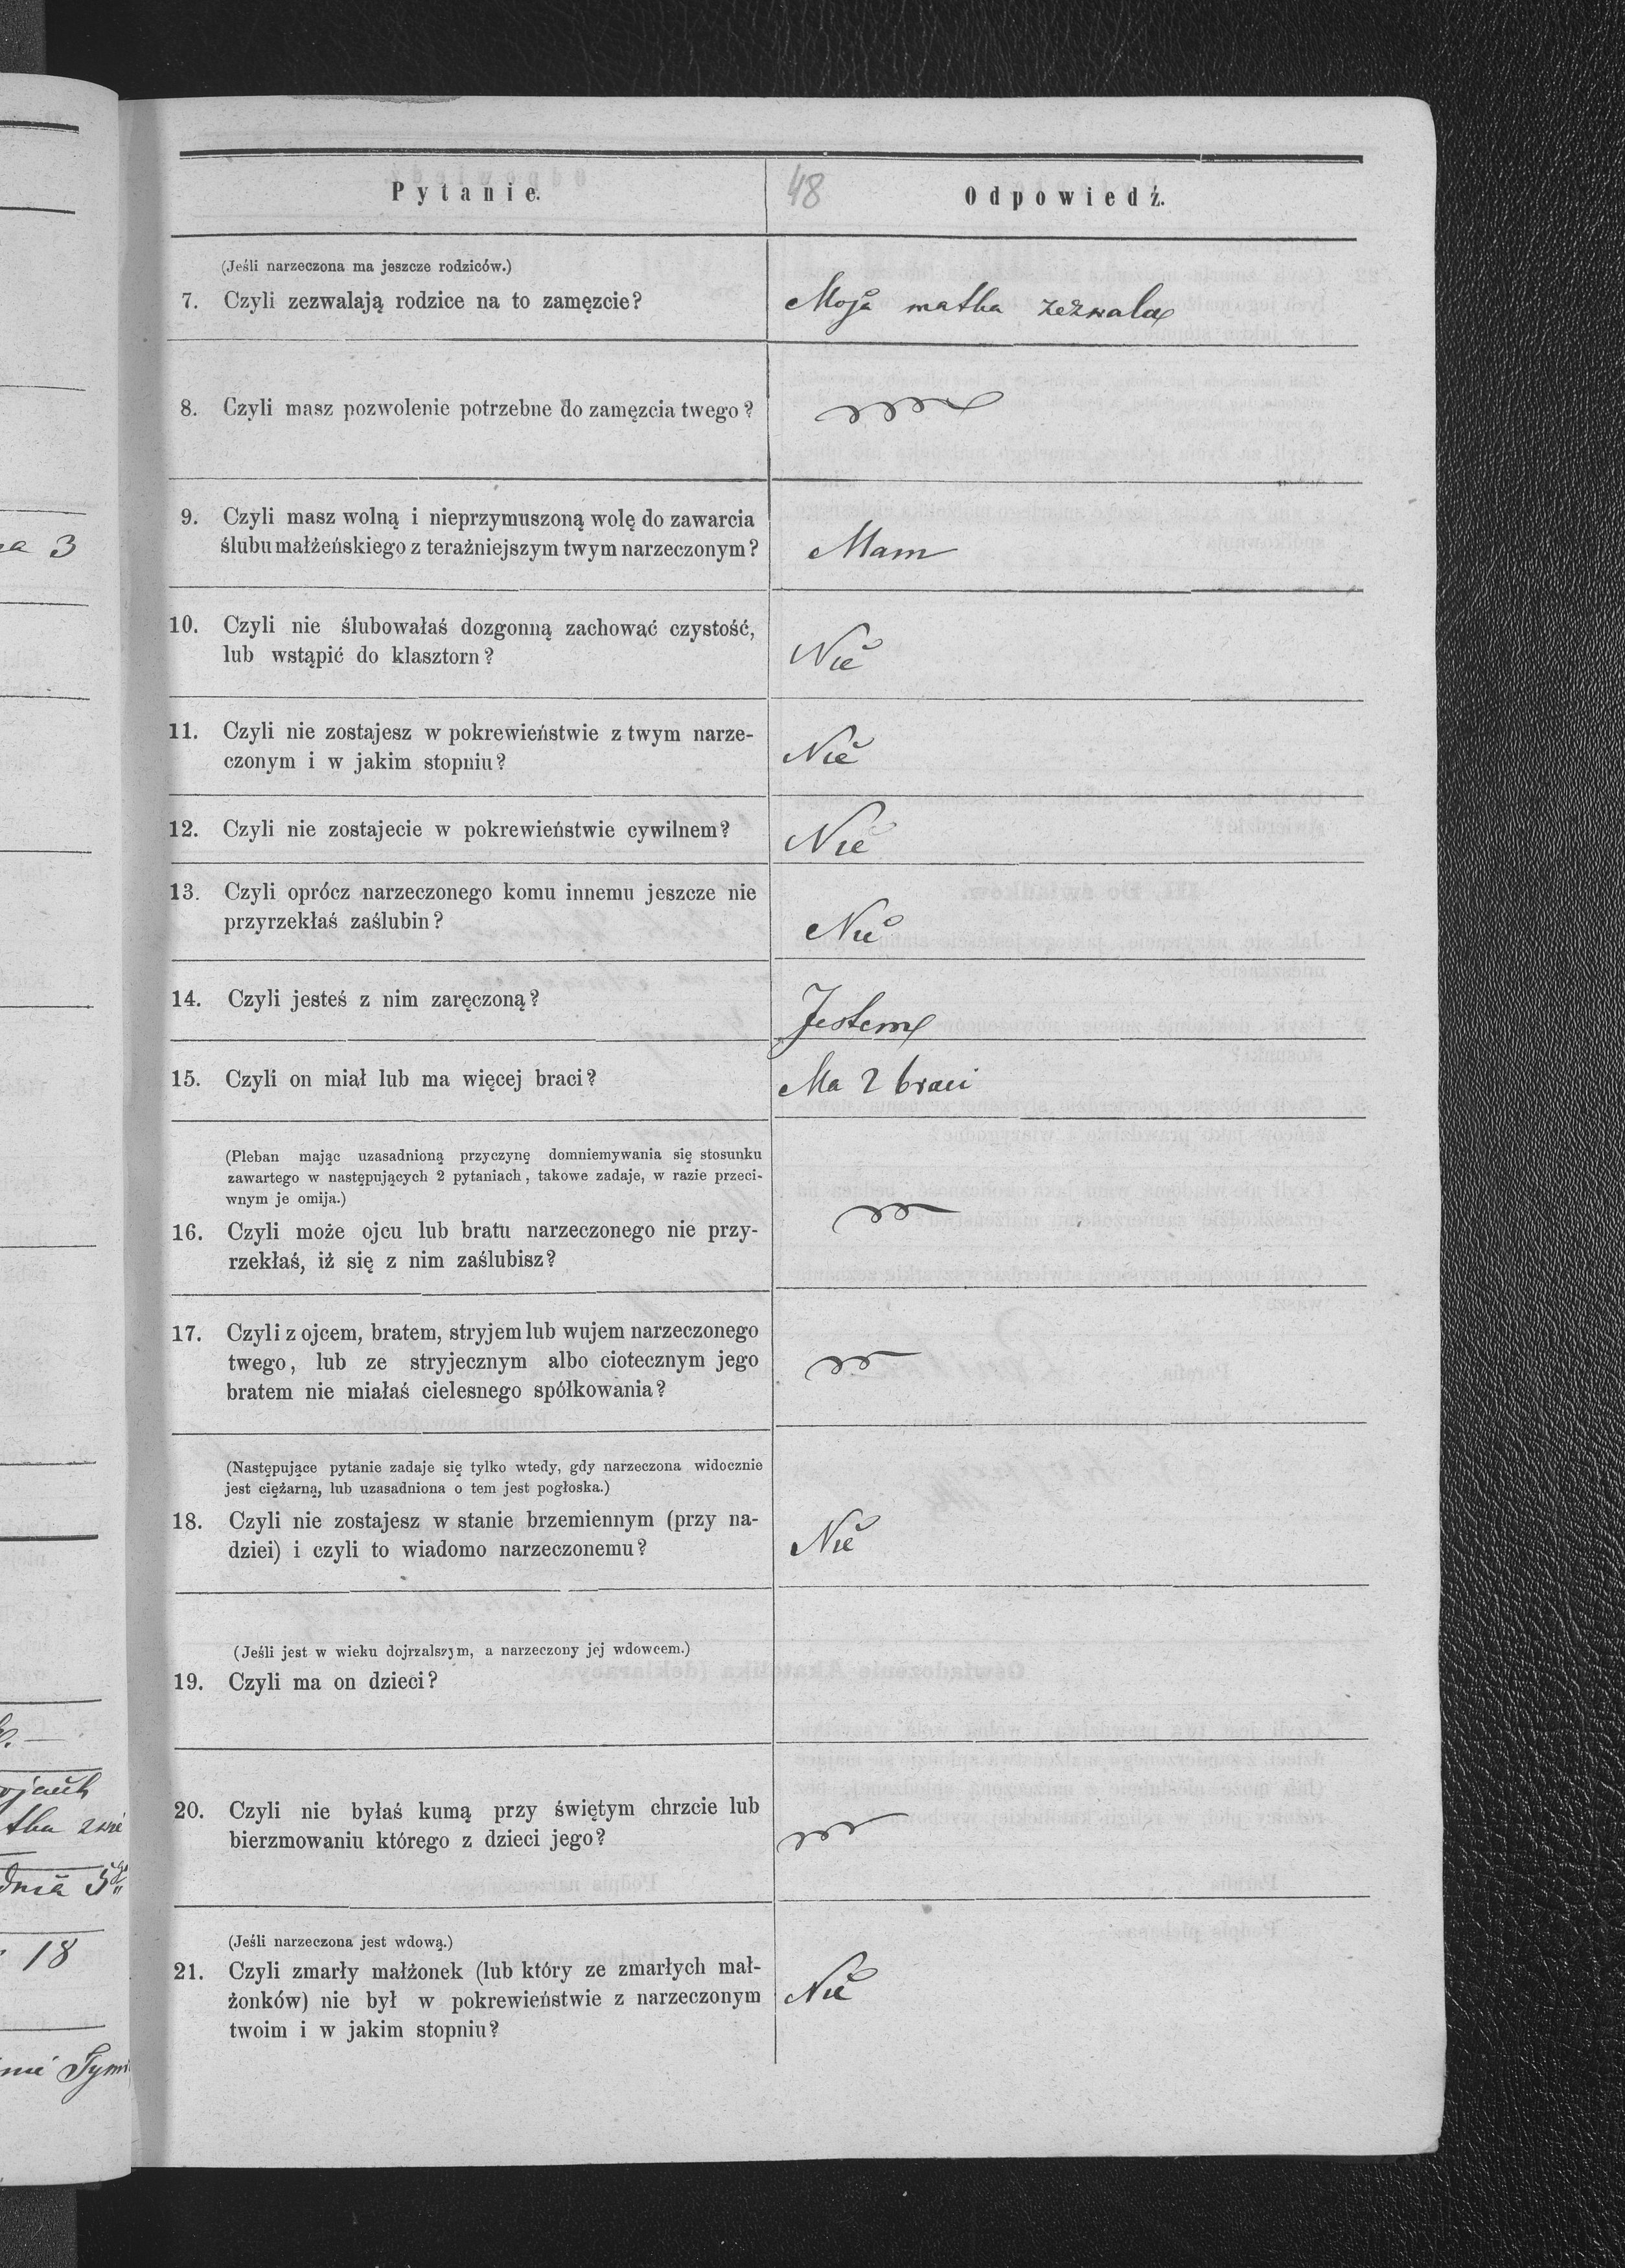 Pytanie.
48
Odpowiedź.
(Jeśli narzeczona ma jeszcze rodziców.)
7. Czyli zezwalają rodzice na to zamęzcie?
Moja matka zezwala
8. Czyli masz pozwolenie potrzebne do zamęzcia twego?
9. Czyli masz wolną i nieprzymuszoną wolę do zawarcia
ślubu małżeńskiego z teraźniejszym twym narzeczonym?
Mam
10. Czyli nie ślubowałaś dozgonną zachować czystość,
lub wstąpić do klasztorn?
Nie
11. Czyli nie zostajesz w pokrewieństwie z twym narze-
czonym i w jakim stopniu?
Nie
12. Czyli nie zostajecie w pokrewieństwie cywilnem?
Nie
13. Czyli oprócz narzeczonego komu innemu jeszcze nie
przyrzekłaś zaślubin?
Nie
14. Czyli jesteś z nim zaręczoną?
Jestem
15. Czyli on miał lub ma więcej braci?
Ma 2 braci
(Pleban mając uzasadnioną przyczynę domniemywania się stosunku
zawartego w następujących 2 pytaniach, takowe zadaje, w razie przeci-
wnym je omija.)
16. Czyli może ojcu lub bratu narzeczonego nie przy-
rzekłaś, iż się z nim zaślubisz?
17. Czyli z ojcem, bratem, stryjem lub wujem narzeczonego
twego, lub ze stryjecznym albo ciotecznym jego
bratem nie miałaś cielesnego spółkowania?
(Następujące pytanie zadaje się tylko wtedy, gdy narzeczona widocznie
jest ciężarną, lub uzasadniona o tem jest pogłoska.)
18. Czyli nie zostajesz w stanie brzemiennym (przy na-
dziei) i czyli to wiadomo narzeczonemu?
Nie
(Jeśli jest w wieku dojrzalszym, a narzeczony jej wdowcem.)
19. Czyli ma on dzieci?
20. Czyli nie byłaś kumą przy świętym chrzcie lub
bierzmowaniu którego z dzieci jego?
(Jeśli narzeczona jest wdową.)
21. Czyli zmarły małżonek (lub który ze zmarłych mał-
żonków) nie był w pokrewieństwie z narzeczonym
twoim i w jakim stopniu?
Nie